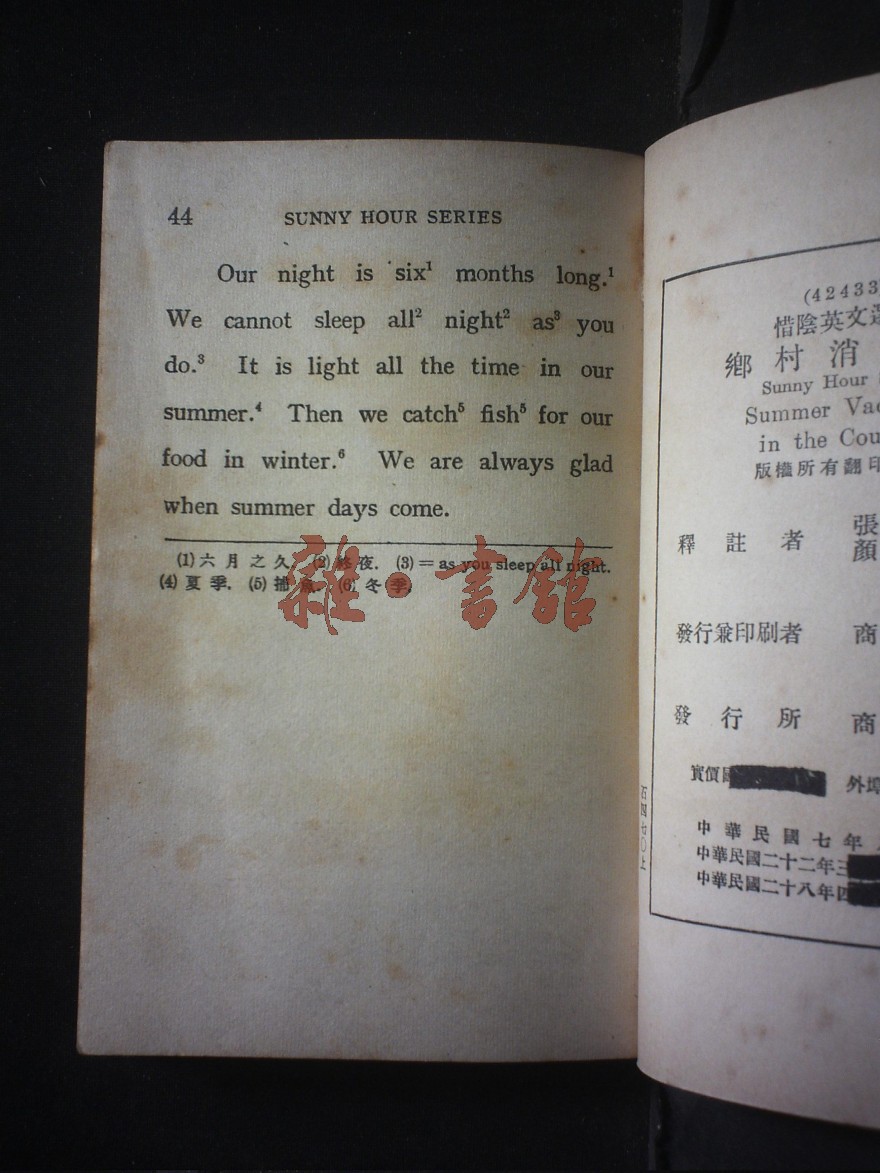 44 SUNNY HOUR SERIES
Our night is six¹ months long.¹
We cannot sleep all² night² as³ you
do.³ It is light all the time in our
summer.⁴ Then we catch⁵ fish⁵ for our
food in winter.⁶ We are always glad
when summer days come.
(1) 六月之久. (2) 終夜. (3) = as you sleep all night.
(4) 夏季. (5) 捕魚. (6) 冬季.
雜·書館
(42433
惜陰英文選
鄉村消
Sunny Hour
Summer Vac
in the Cou
版權所有翻印
釋註者
張
顏
發行兼印刷者 商
發行所 商
實價國
外埠
中華民國七年
中華民國二十二年三
中華民國二十八年四
石四七〇上